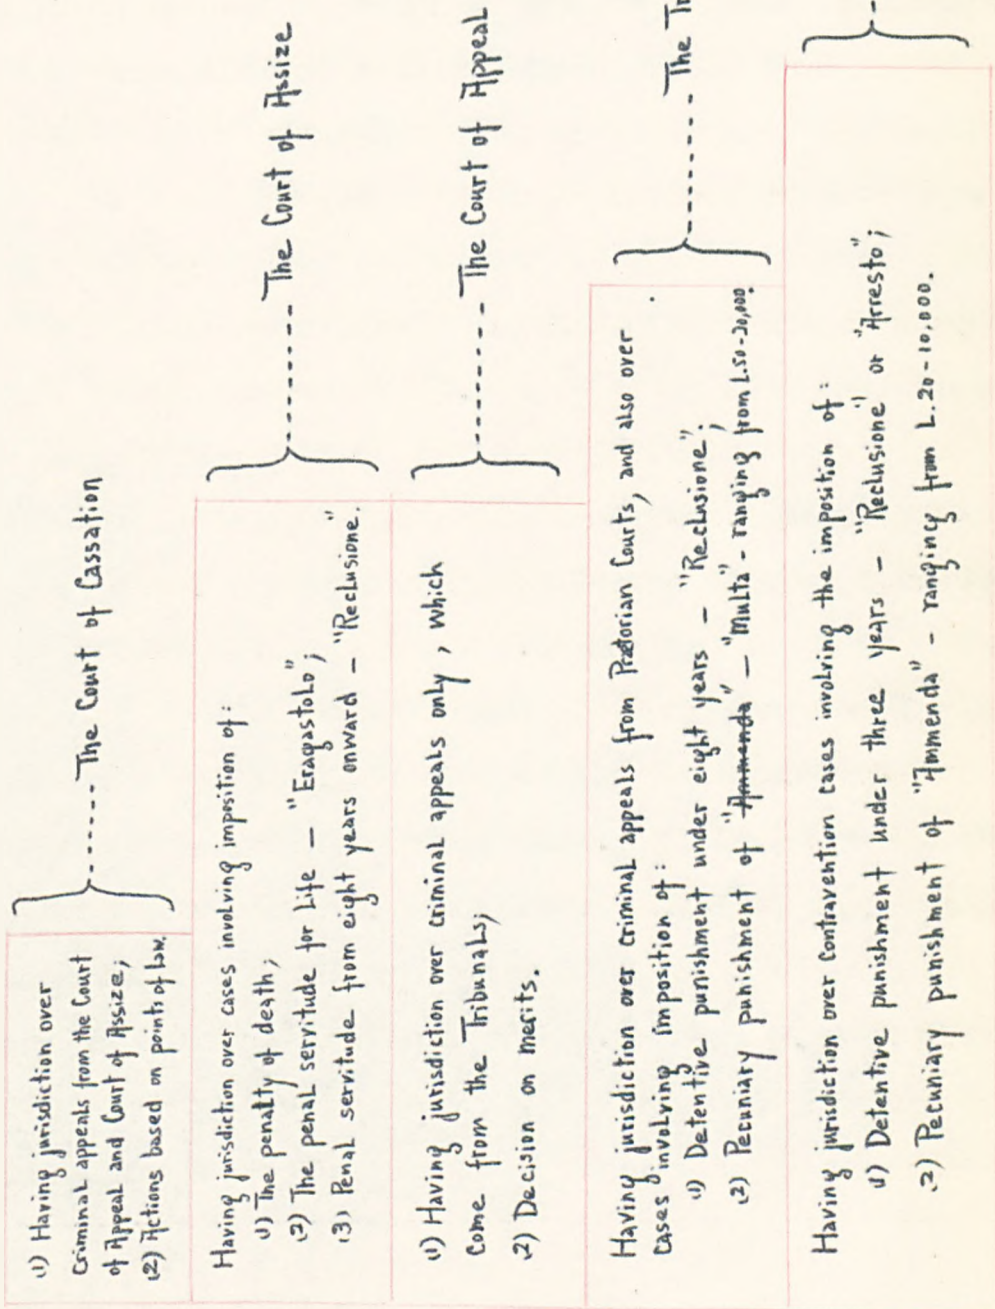 (1) Having jurisdiction over
Criminal appeals from the Court
of Appeal and Court of Assize;
(2) Actions based on points of law.
The Court of Cassation
Having jurisdiction over cases involving imposition of:
(1) The penalty of death;
(2) The penal servitude for Life – "Eragastolo";
(3) Penal servitude from eight years onward – "Reclusione".
The Court of Assize
(1) Having jurisdiction over criminal appeals only, which
Come from the Tribunals;
(2) Decision on merits.
The Court of Appeal
Having jurisdiction over criminal appeals from Praetorian Courts, and also over
Cases involving imposition of:
(1) Detentive punishment under eight years – "Reclusione";
(2) Pecuniary punishment of "Ammenda" – "Multa" - ranging from L.50-20,000.
The
Having jurisdiction over contravention cases involving the imposition of:
(1) Detentive punishment under three years – "Reclusione" or "Arresto";
(2) Pecuniary punishment of "Ammenda" – ranging from L.20-10,000.